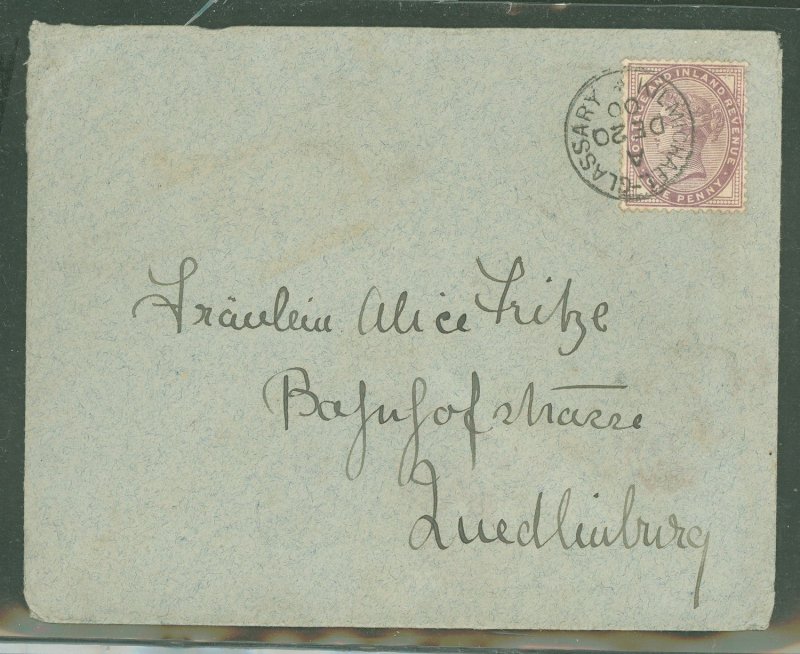 POSTAGE AND INLAND REVENUE
ONE PENNY
GLASSARY
A
DE 20
00
Fräulein Alice Fritze
Bahnhofstrasse
Quedlinburg